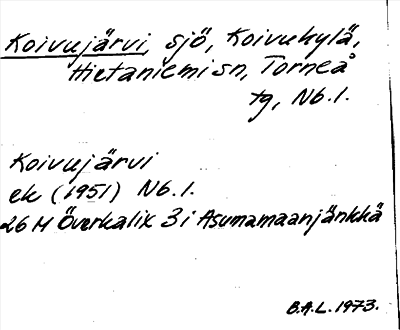 Koivujärvi, sjö, Koivukylä,
Hietaniemi sn, Torneå
tg, Nb.1.
Koivujärvi
ek (1951) Nb.1.
26 M Överkalix 3i Asumamaanjänkkä
B.A.L. 1973.